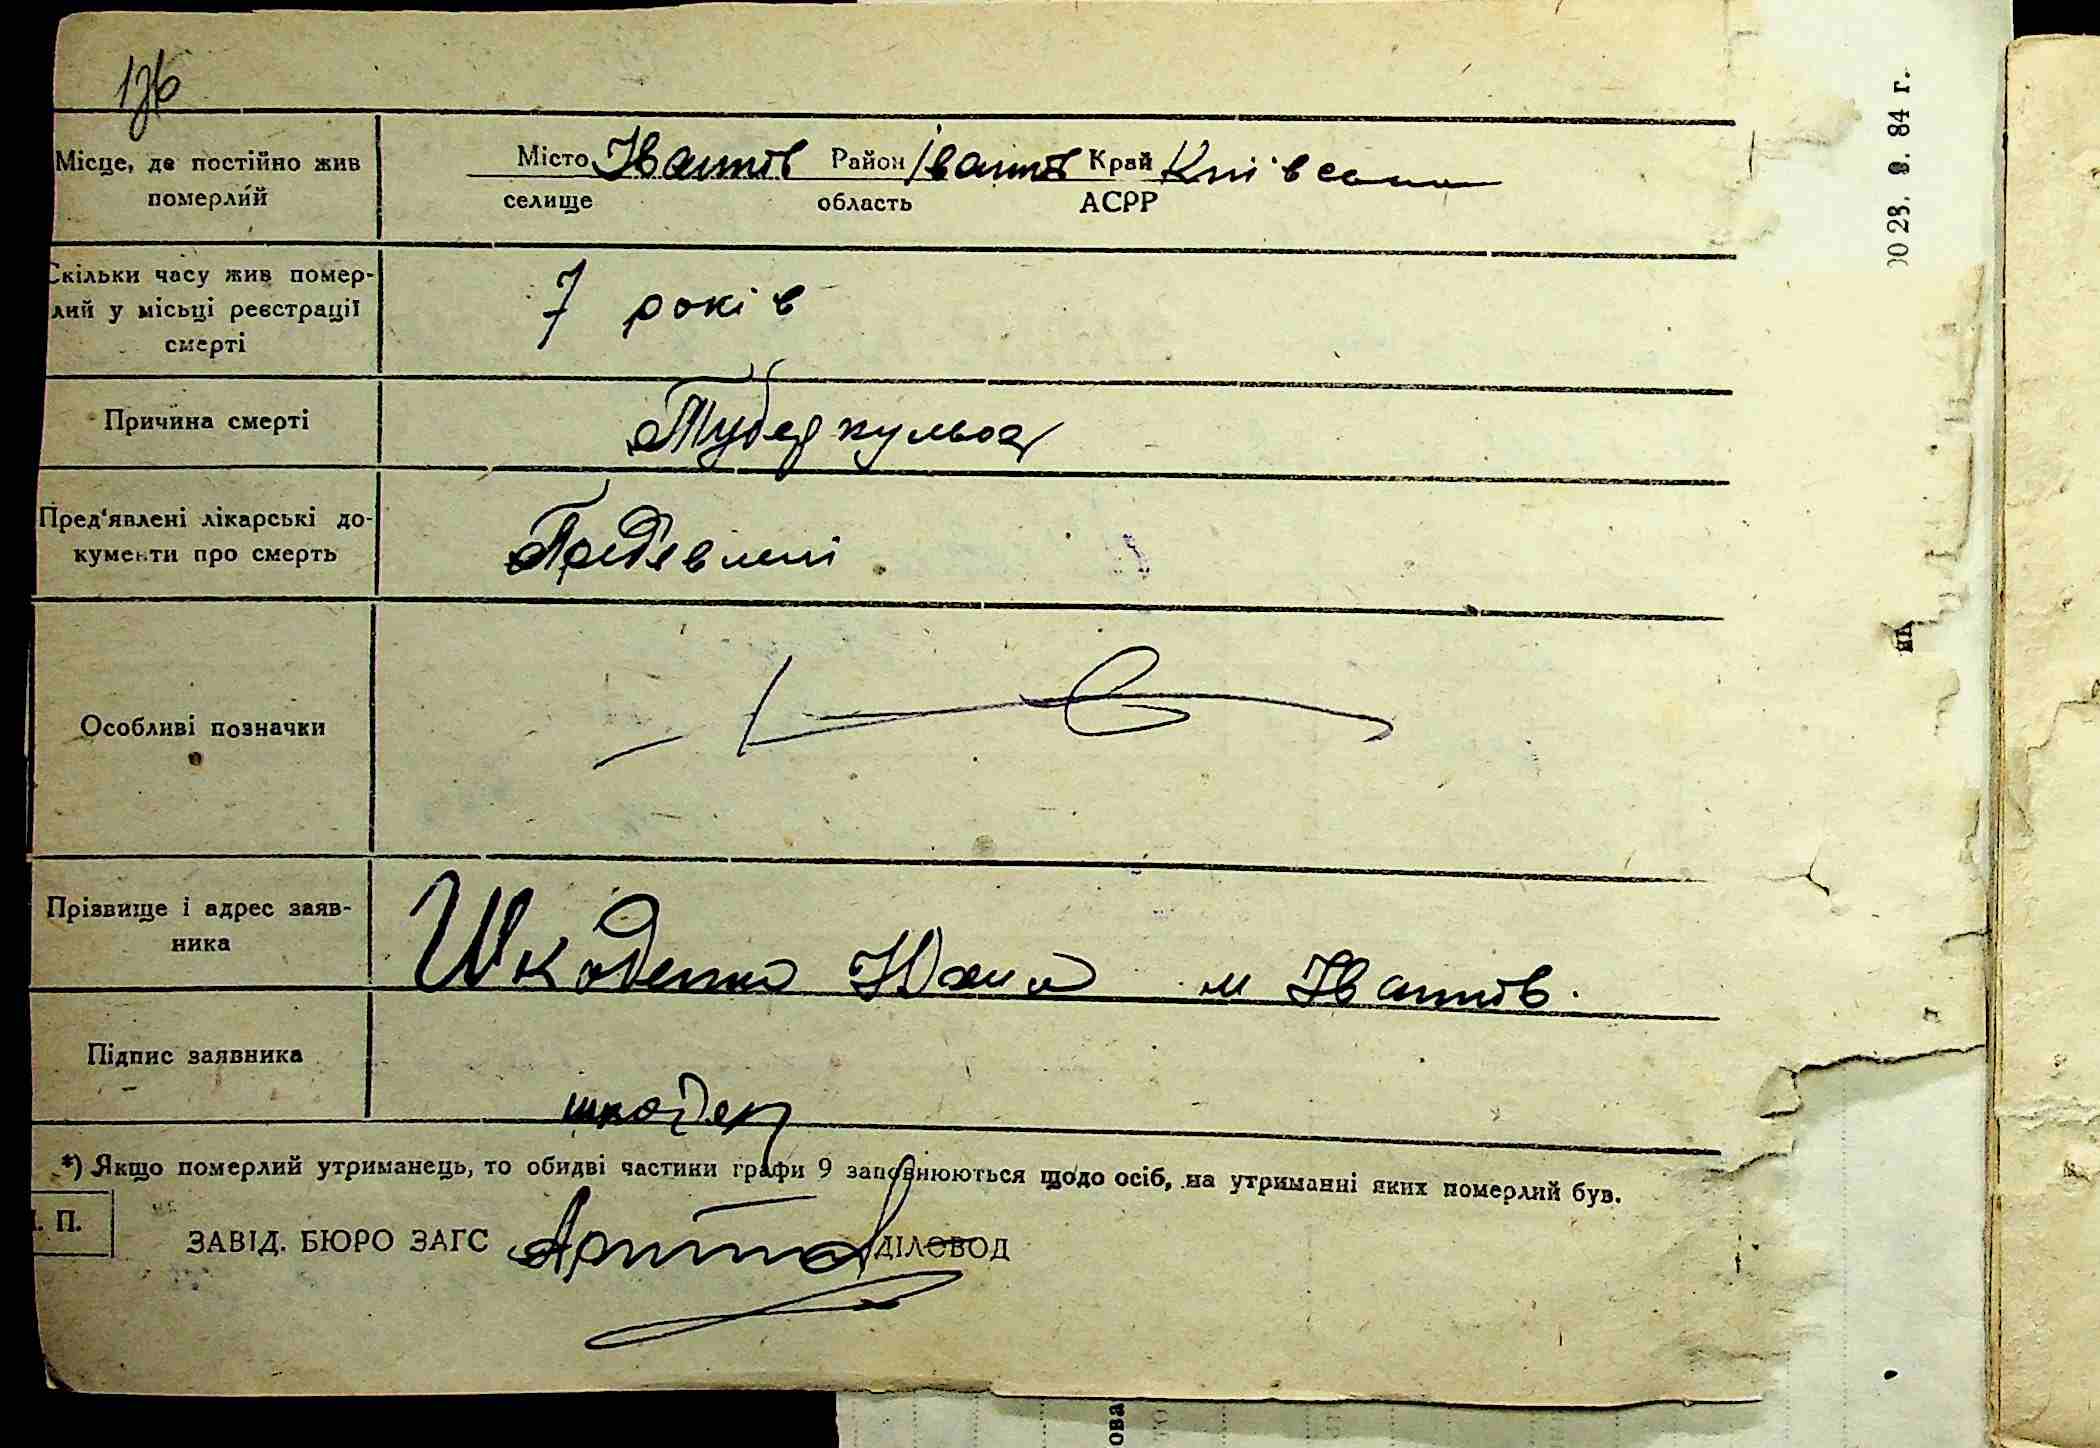 136
Місце, де постійно жив Місто Іванків Район Іванків Край Київська
померлий селище область АСРР
Скільки часу жив помер-
лий у місьці реєстрації 7 років
смерті
Причина смерті Туберкульоз
Пред'явлені лікарські до- Пред'явлені
кументи про смерть
Особливі позначки
Прізвище і адрес заяв- Шкоденко м Іванків.
ника
Підпис заявника шкоден
*) Якщо померлий утриманець, то обидві частини графи 9 заповнюються щодо осіб, на утриманні яких померлий був.
. П.
ЗАВІД. БЮРО ЗАГС ДІЛОВОД
84 г.
ова